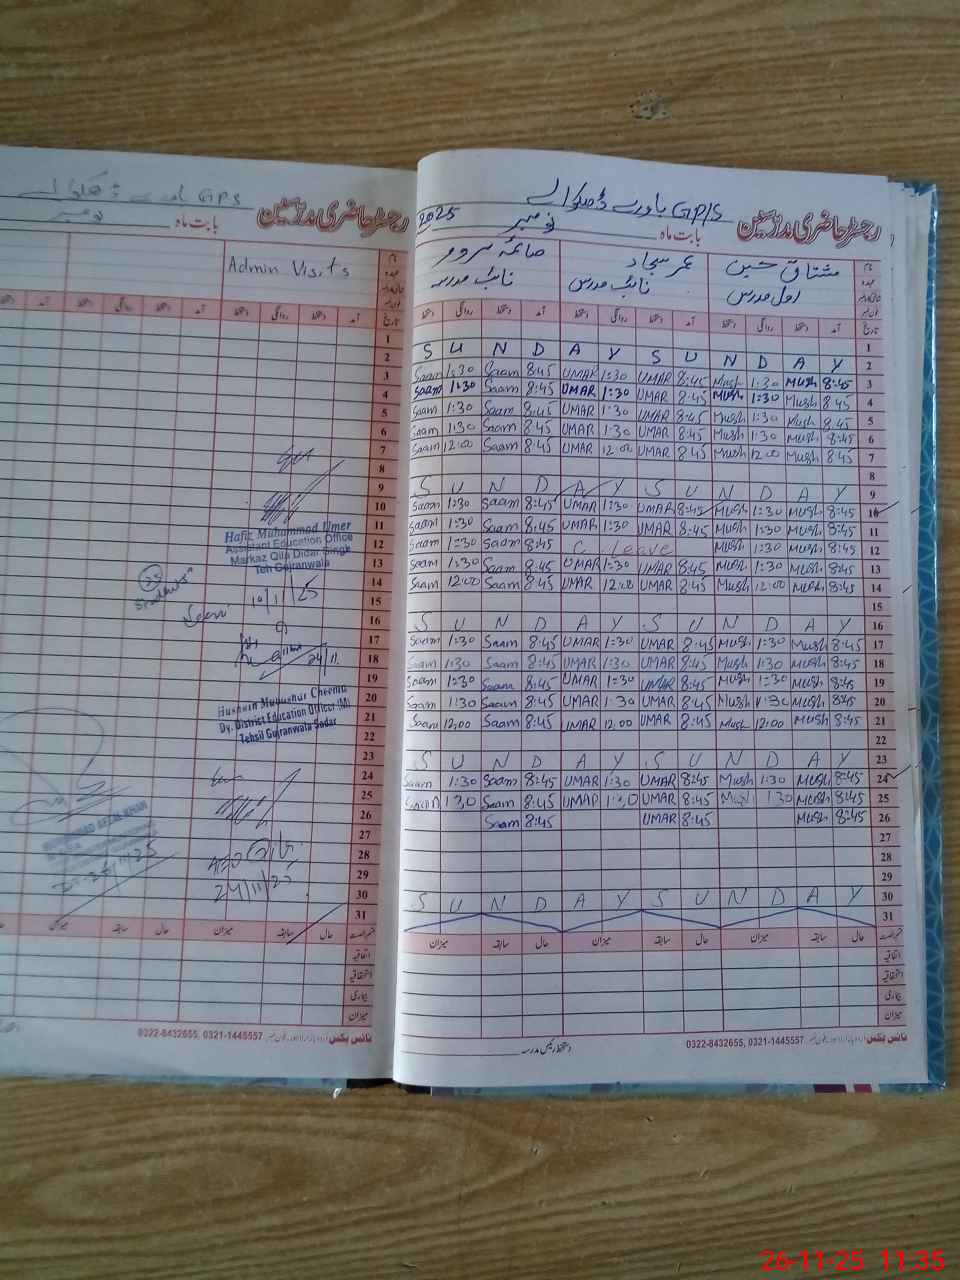 GPS باورے ڈھلوالے
نومبر
رجسٹر حاضری مدرسین
بابت ماہ
Admin Visits
نام
عہدہ
تاریخ
آمد دستخط روانگی دستخط آمد دستخط روانگی دستخط
1
2
3
4
5
6
7
8
9
10
11
12
13
14
15
16
17
18
19
20
21
22
23
24
25
26
27
28
29
30
31
Hafiz Muhammad Umer
Assistant Education Office
Markaz Qila Didar Singk
Teh Gujranwala
10/11/25
24/11
Dy. District Education Officer (M)
Tehsil Gujranwala Sadar
AEO
24/11/25
حال سابقہ میزان حال سابقہ
اتفاقیہ
استحقاقیہ
بیماری
میزان
0322-8432655, 0321-1445557
GP/S باورے ڈھلوالے
2025 نومبر
رجسٹر حاضری مدرسین
بابت ماہ
نام مشتاق حسین عمر سجاد صائمہ سرور
عہدہ اول مدرس نائب مدرس نائب مدرسہ
تاریخ آمد دستخط روانگی دستخط آمد دستخط روانگی دستخط آمد دستخط روانگی دستخط
1
S U N D A Y S U N D A Y 2
Saam 1:30 Saam 8:45 UMAR 1:30 UMAR 8:45 Mush 1:30 Mush 8:45 3
Saam 1:30 Saam 8:45 UMAR 1:30 UMAR 8:45 Mush 1:30 Mush 8:45 4
Saam 1:30 Saam 8:45 UMAR 1:30 UMAR 8:45 Mush 1:30 Mush 8:45 5
Saam 1:30 Saam 8:45 UMAR 1:30 UMAR 8:45 Mush 1:30 Mush 8:45 6
Saam 12:00 Saam 8:45 UMAR 12:00 UMAR 8:45 Mush 12:00 Mush 8:45 7
8
S U N D A Y S U N D A Y 9
Saam 1:30 Saam 8:45 UMAR 1:30 UMAR 8:45 Mush 1:30 Mush 8:45 10
Saam 1:30 Saam 8:45 UMAR 1:30 UMAR 8:45 Mush 1:30 Mush 8:45 11
Saam 1:30 Saam 8:45 C. Leave Mush 1:30 Mush 8:45 12
Saam 1:30 Saam 8:45 UMAR 1:30 UMAR 8:45 Mush 1:30 Mush 8:45 13
Saam 12:00 Saam 8:45 UMAR 12:00 UMAR 8:45 Mush 12:00 Mush 8:45 14
15
S U N D A Y S U N D A Y 16
Saam 1:30 Saam 8:45 UMAR 1:30 UMAR 8:45 Mush 1:30 Mush 8:45 17
Saam 1:30 Saam 8:45 UMAR 1:30 UMAR 8:45 Mush 1:30 Mush 8:45 18
Saam 1:30 Saam 8:45 UMAR 1:30 UMAR 8:45 Mush 1:30 Mush 8:45 19
Saam 1:30 Saam 8:45 UMAR 1:30 UMAR 8:45 Mush 1:30 Mush 8:45 20
Saam 12:00 Saam 8:45 UMAR 12:00 UMAR 8:45 Mush 12:00 Mush 8:45 21
22
S U N D A Y S U N D A Y 23
Saam 1:30 Saam 8:45 UMAR 1:30 UMAR 8:45 Mush 1:30 Mush 8:45 24
Saam 1:30 Saam 8:45 UMAR 1:30 UMAR 8:45 Mush 1:30 Mush 8:45 25
Saam 8:45 UMAR 8:45 Mush 8:45 26
27
28
29
S U N D A Y S U N D A Y 30
31
حال سابقہ میزان حال سابقہ میزان حال سابقہ میزان
اتفاقیہ
استحقاقیہ
بیماری
میزان
0322-8432655, 0321-1445557
دستخط رئیس مدرسہ
26-11-25 11:35